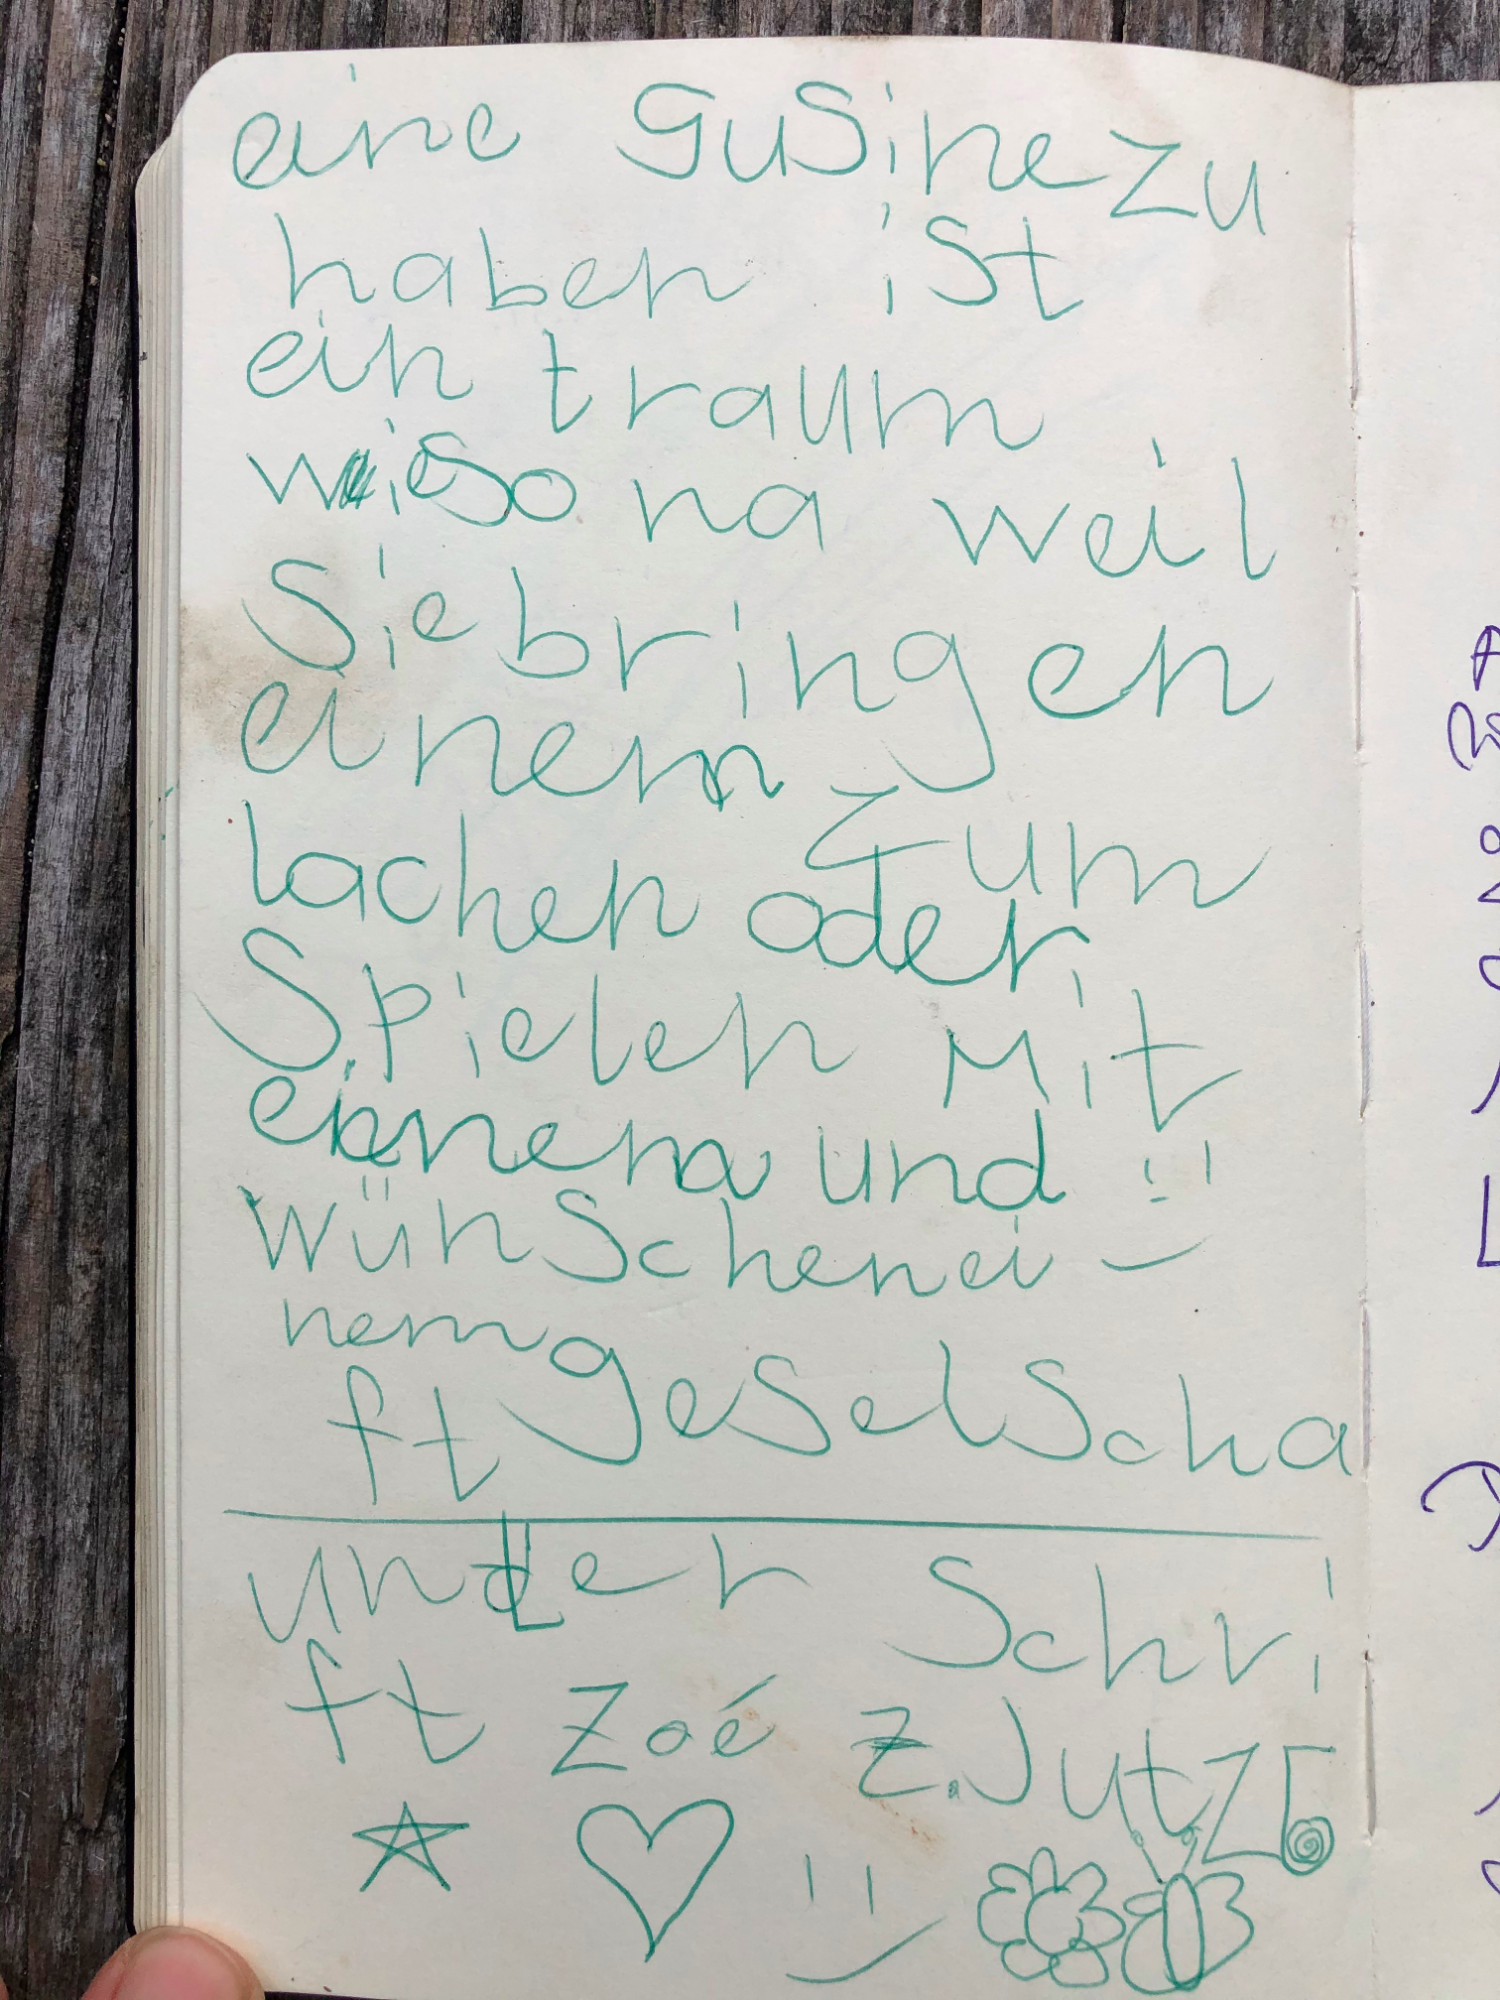 eine Gusine zu
haben ist
ein traum
wieso na weil
Sie bringen
einem zum
lachen oder
Spielen mit
einem und
wünschen ei
nem geselscha
ft
under Schri
ft Zoé Z. Jutz